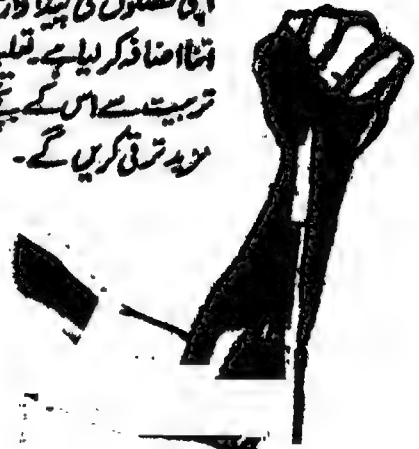 اپنی فصلوں کی پیداوار
اتنا اضافہ کر لیا ہے۔ تعلیم
تربیت سے اس کے بچے
مزید ترقی کریں گے۔